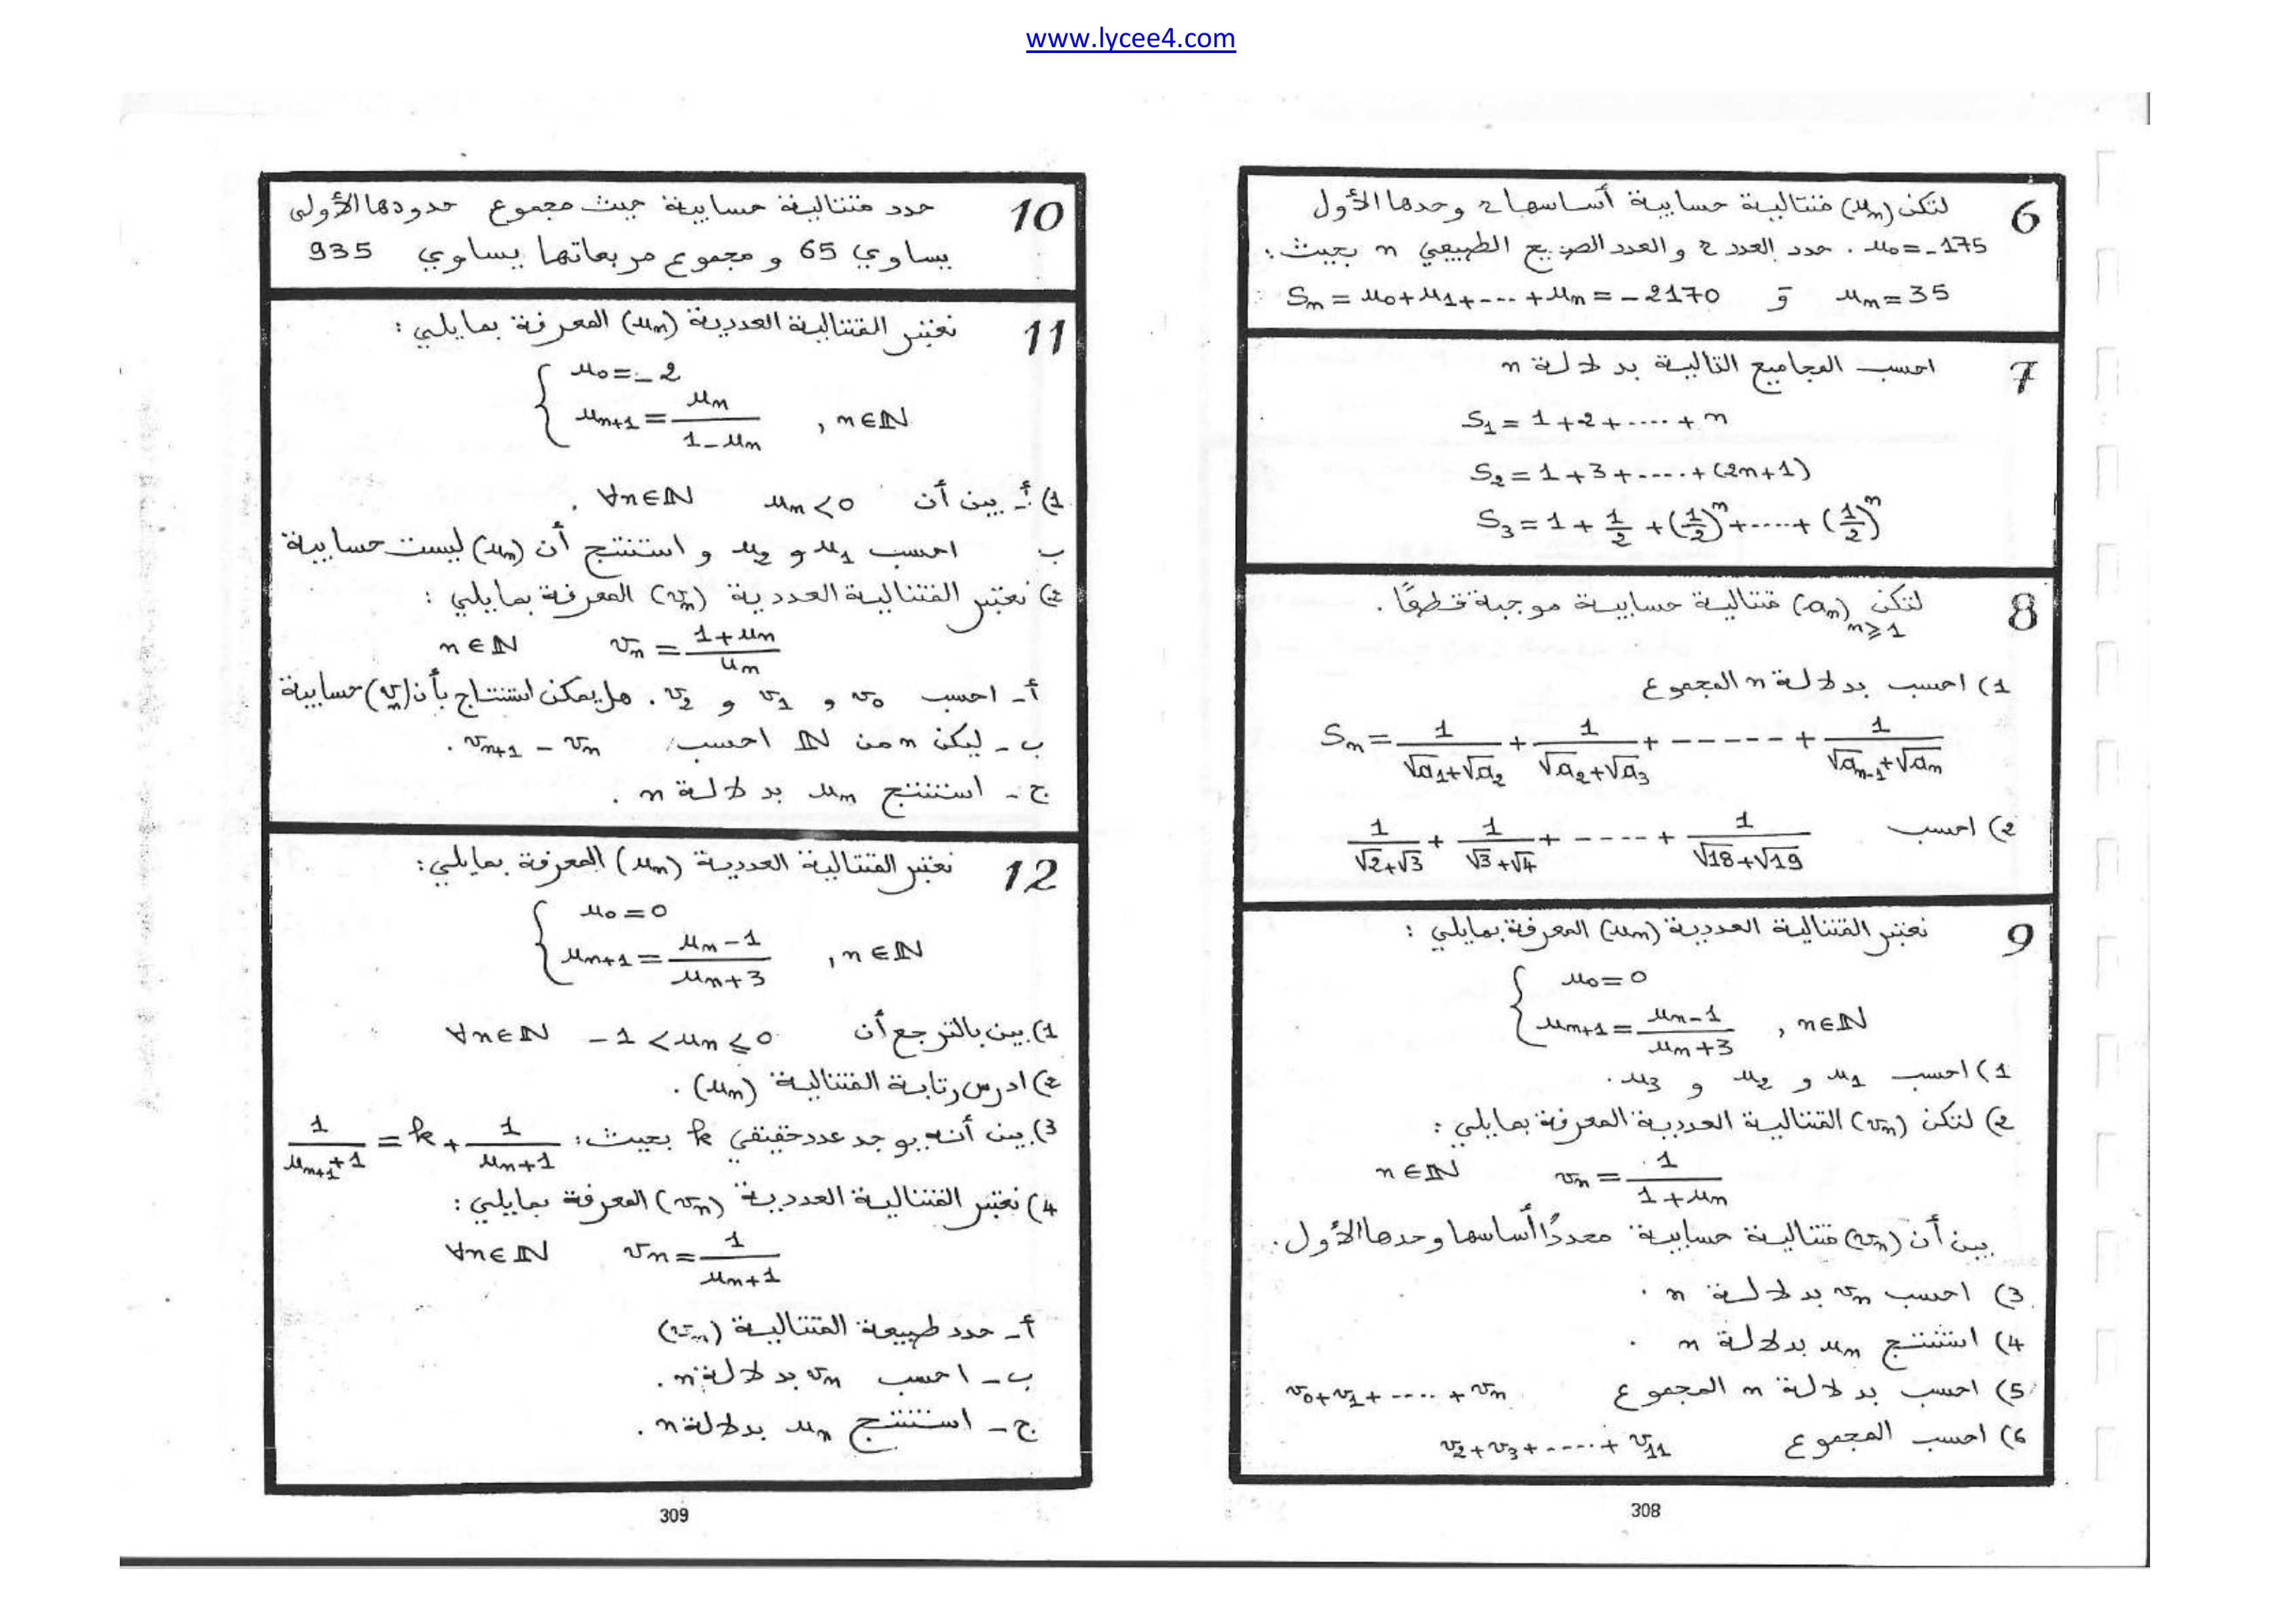 www.lycee4.com
6 لتكن (uₙ) متتالية حسابية أساسها r وحدها الأول
u₀ = -175 . حدد العدد r والعدد الصحيح الطبيعي n بحيث :
uₙ = 35 و Sₙ = u₀ + u₁ + --- + uₙ = -2170
7 احسب المجاميع التالية بدلالة n
S₁ = 1 + 2 + ..... + n
S₂ = 1 + 3 + ..... + (2n+1)
S₃ = 1 + 1/2 + (1/2)ⁿ + ..... + (1/2)ⁿ
8 لتكن (aₙ)ₙ≥₁ متتالية حسابية موجبة قطعًا .
1) احسب بدلالة n المجموع
Sₙ = 1/(√a₁+√a₂) + 1/(√a₂+√a₃) + ------ + 1/(√aₙ₋₁+√aₙ)
2) احسب 1/(√2+√3) + 1/(√3+√4) + ---- + 1/(√18+√19)
9 نعتبر المتتالية العددية (uₙ) المعرفة بمايلي :
u₀ = 0
uₙ₊₁ = (uₙ-1)/(uₙ+3) , n∈ℕ
1) احسب u₁ و u₂ و u₃ .
2) لتكن (vₙ) المتتالية العددية المعرفة بمايلي :
vₙ = 1/(1+uₙ) n∈ℕ
بين أن (vₙ) متتالية حسابية محددًا أساسها وحدها الأول .
3) احسب vₙ بدلالة n .
4) استنتج uₙ بدلالة n .
5) احسب بدلالة n المجموع v₀+v₁+ .... + vₙ
6) احسب المجموع v₂+v₃+ ..... + v₁₁
308
10 حدد متتالية حسابية حيث مجموع حدودها الأولى
يساوي 65 و مجموع مربعاتها يساوي 935
11 نعتبر المتتالية العددية (uₙ) المعرفة بمايلي :
u₀ = -2
uₙ₊₁ = uₙ/(1-uₙ) , n∈ℕ
1) أ- بين أن uₙ < 0 ∀n∈ℕ .
ب احسب u₁ و u₂ و استنتج أن (uₙ) ليست حسابية
2) نعتبر المتتالية العددية (vₙ) المعرفة بمايلي :
vₙ = (1+uₙ)/uₙ n∈ℕ
أ- احسب v₀ و v₁ و v₂ . هل يمكن استنتاج بأن (vₙ) حسابية
ب- ليكن n من ℕ احسب vₙ₊₁ - vₙ .
ج- استنتج uₙ بدلالة n .
12 نعتبر المتتالية العددية (uₙ) المعرفة بمايلي :
u₀ = 0
uₙ₊₁ = (uₙ-1)/(uₙ+3) , n∈ℕ
1) بين بالترجع أن -1 < uₙ ≤ 0 ∀n∈ℕ
2) ادرس رتابة المتتالية (uₙ) .
3) بين أنه يوجد عدد حقيقي k بحيث : 1/(uₙ₊₁+1) = k + 1/(uₙ+1)
4) نعتبر المتتالية العددية (vₙ) المعرفة بمايلي :
vₙ = 1/(uₙ+1) ∀n∈ℕ
أ- حدد طبيعة المتتالية (vₙ)
ب- احسب vₙ بدلالة n .
ج- استنتج uₙ بدلالة n .
309